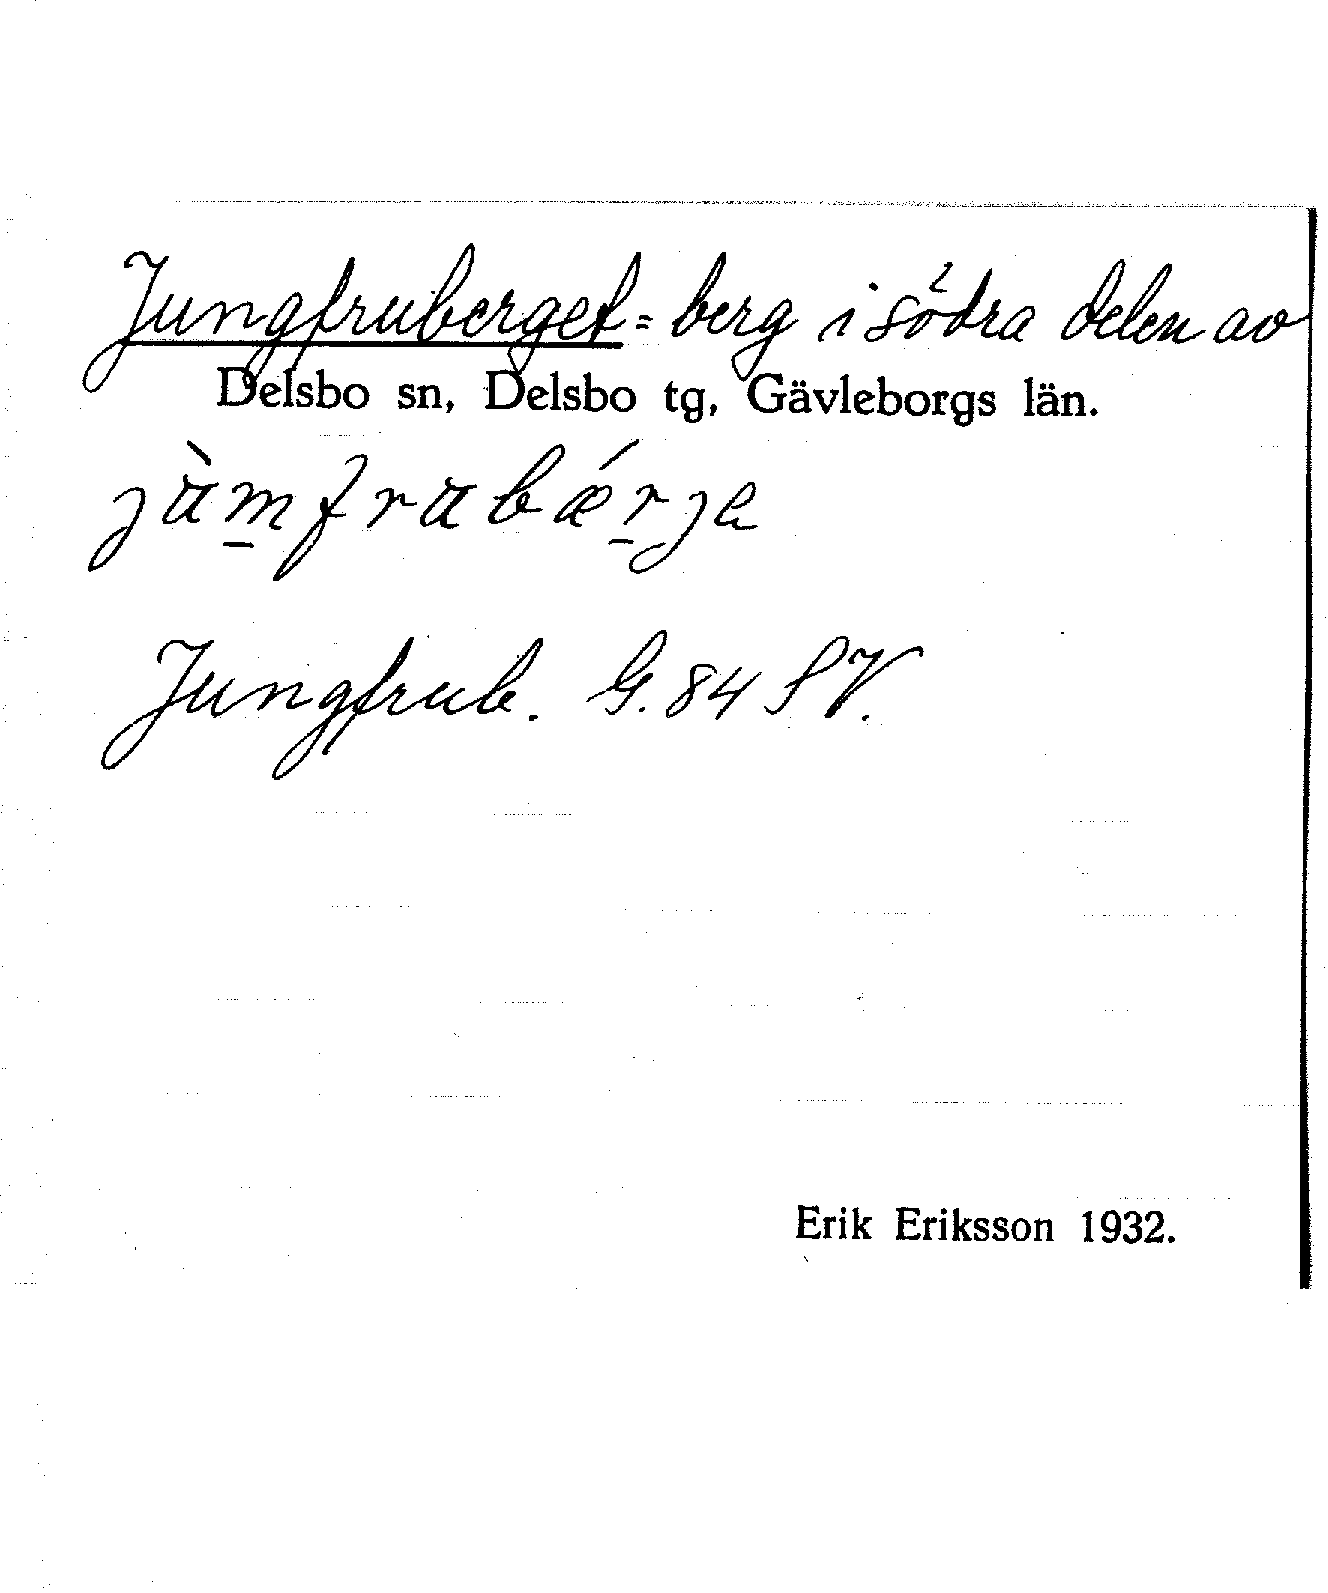 Jungfruberget = berg i södra delen av
Delsbo sn, Delsbo tg, Gävleborgs län.
jὰm̲frαbǽr̲je
Jungfrub. G. 84 SV.
Erik Eriksson 1932.